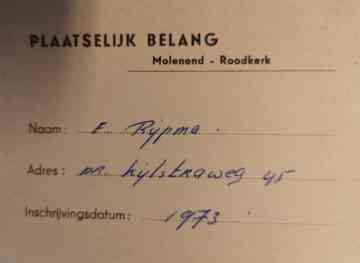 PLAATSELIJK BELANG
Molenend - Roodkerk
Naam: E. Rypma.
Adres: Dr. Kijlstraweg 45
Inschrijvingsdatum: 1973.